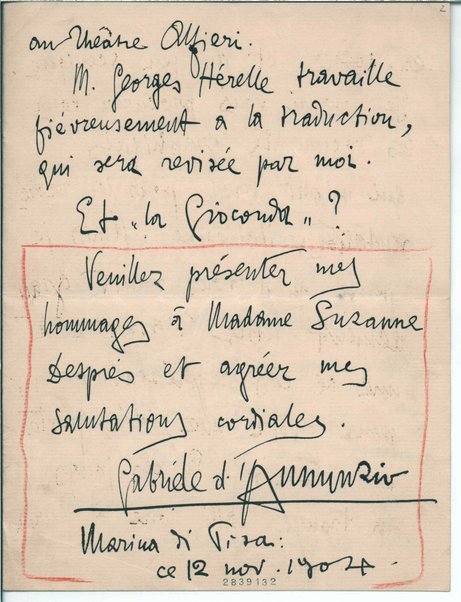 2
au Théâtre Alfieri.
M. Georges Hérelle travaille
fiévreusement à la traduction,
qui sera revisée par moi.
Et „la Gioconda„ ?
Veuillez présenter mes
hommages à Madame Suzanne
Desprès et agréer mes
salutations cordiales.
Gabriele d'Annunzio
Marina di Pisa:
ce 12 nov. 1904.
2839132